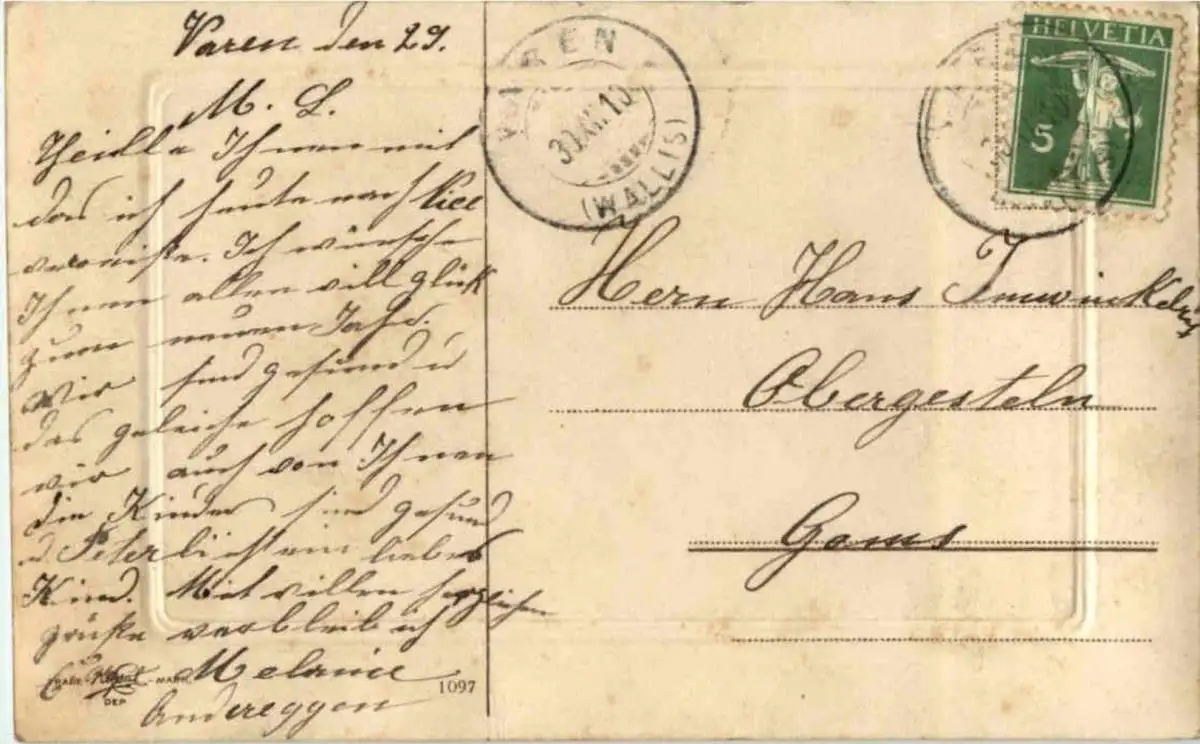 Varen den 29.
M. L.
Theille Ihnen mit
das ich heute nach
verreiste. Ich wünsche
Ihnen allen vill glück
zum neuen Jahr.
Wir sind gesund u
das geleiche hoffen
wir auch von Ihnen
die Kinder sind gesund
u. Peterli ist ein liebes
Kind. Mit villen herzlichen
grüße verbleib ich
Melanie
Andereggen
TRADE MARK
DEP
1097
VAREN
30.XII.10
(WALLIS)
HELVETIA
5
Herrn Hans Imwinkelried
Obergesteln
Goms